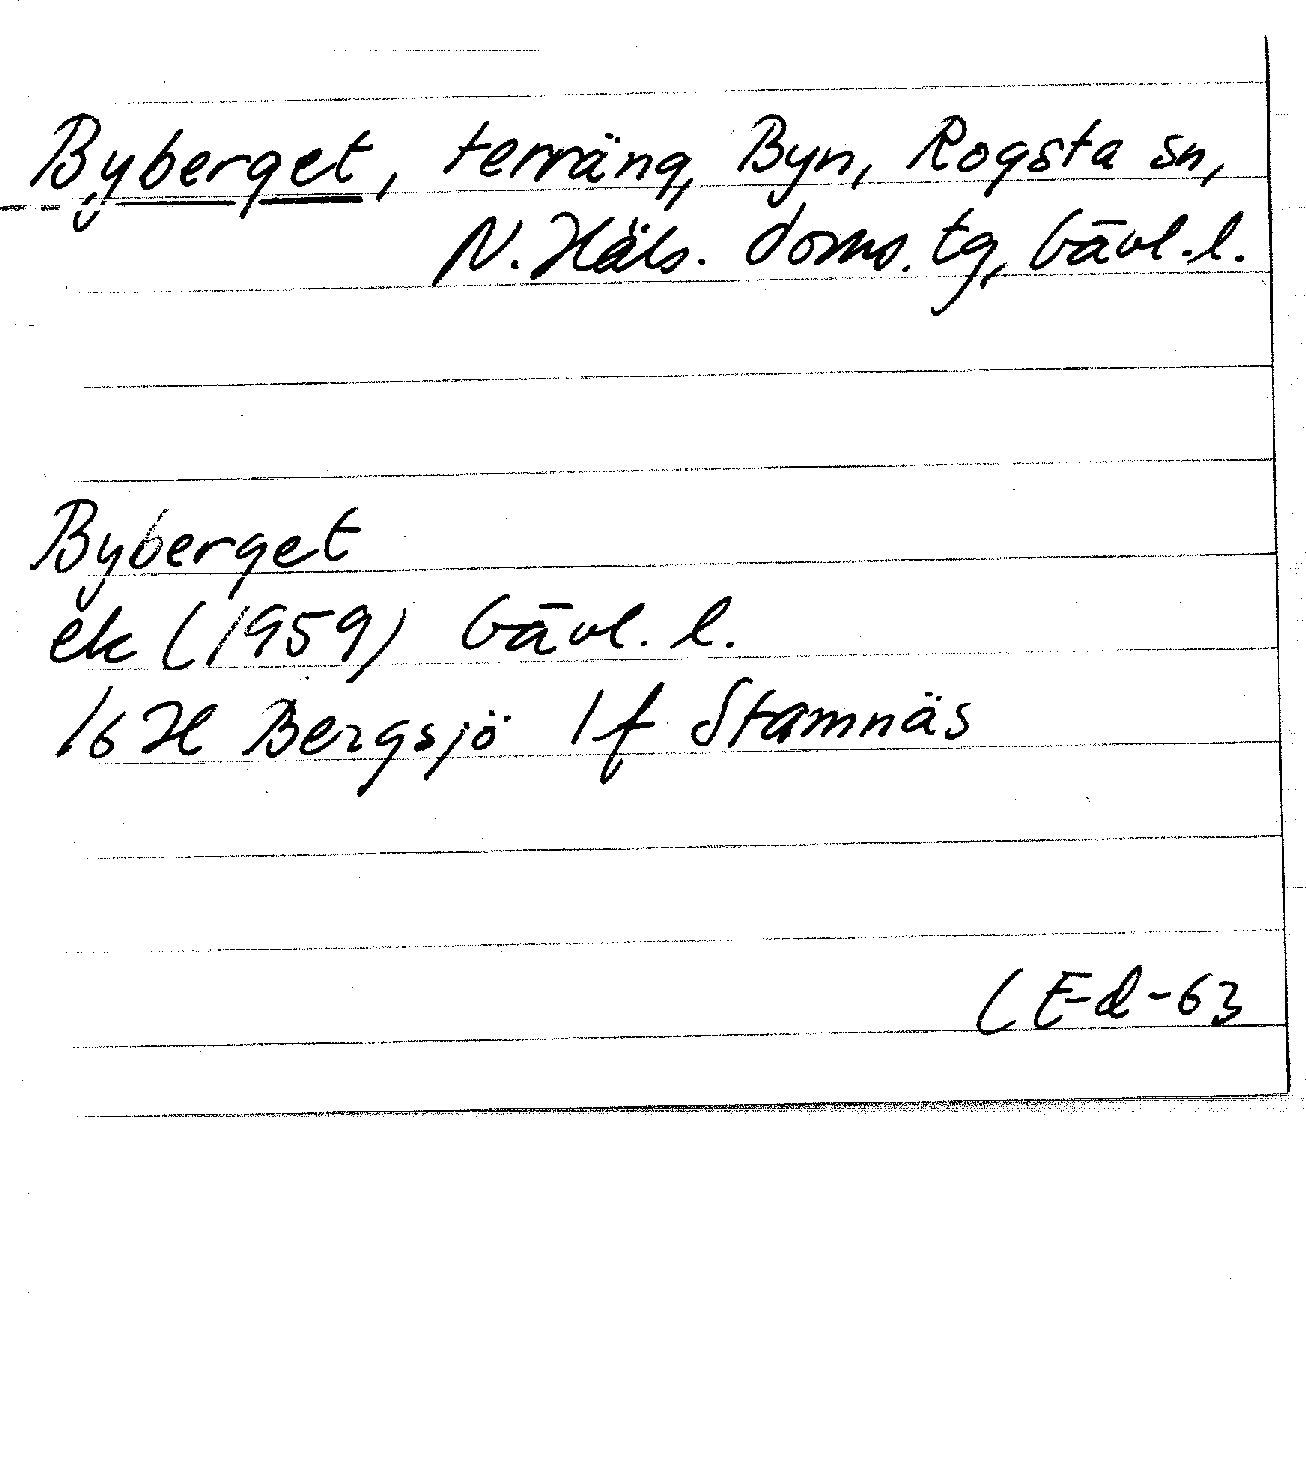 Byberget, terräng, Byn, Rogsta sn,
N. Häls. doms. tg, Gävl. l.
Byberget
ek (1959) Gävl. l.
16 H Bergsjö 1 f Stamnäs
( E-d-63